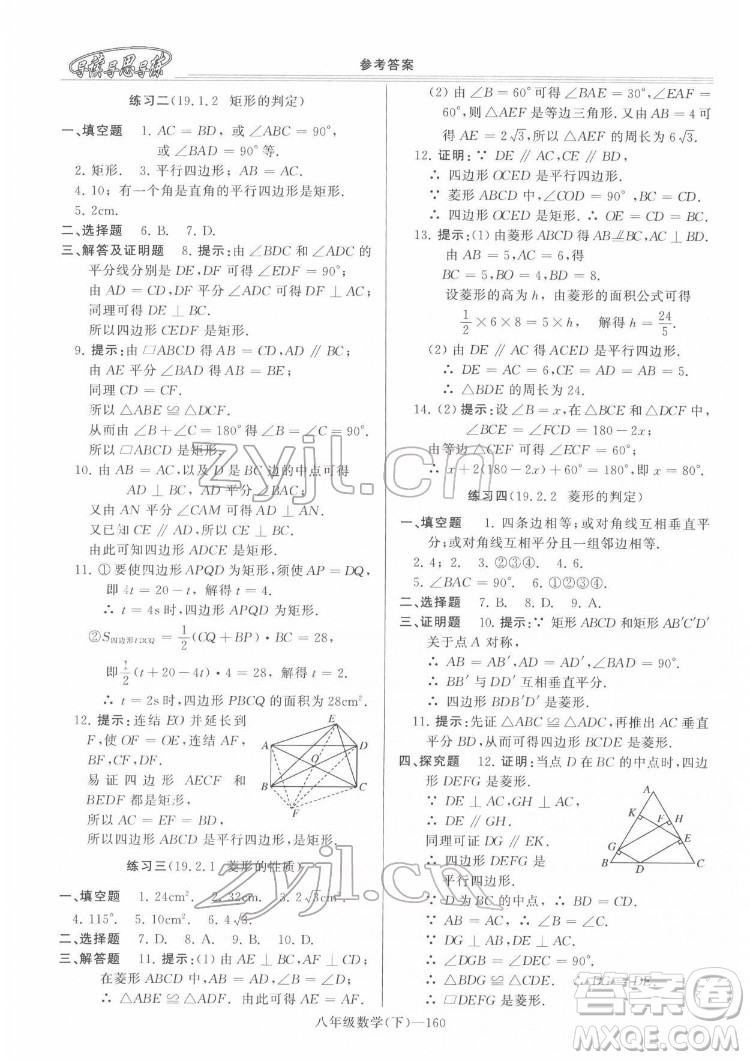 导读导思导练
参考答案
练习二(19.1.2 矩形的判定)
一、填空题 1. AC = BD, 或∠ABC = 90°,
或∠BAD = 90°等.
2. 矩形. 3. 平行四边形; AB = AC.
4. 10; 有一个角是直角的平行四边形是矩形.
5. 2cm.
二、选择题 6. B. 7. D.
三、解答及证明题 8. 提示: 由∠BDC 和∠ADC 的
平分线分别是 DE, DF 可得∠EDF = 90°;
由 AD = CD, DF 平分∠ADC, 得 DF ⊥ AC;
同理可得 DE ⊥ BC.
所以四边形 CEDF 是矩形.
9. 提示: 由 □ABCD 得 AB = CD, AB ∥ CD;
由 AE 平分∠BAD, 可得 AB = BE;
同理 CD = CF.
所以 △ABE ≌ △DCF.
从而∠B = ∠C.
由∠B + ∠C = 180° 得∠B = ∠C = 90°.
所以 □ABCD 是矩形.
10. 由 AB = AC, 以及 D 是 BC 边的中点可得
AD ⊥ BC, AD 平分∠BAC;
又由 AN 平分∠CAM 可得 AD ⊥ AN.
又已知 CE ⊥ AN, ∴ CE ∥ AD.
由此可知四边形 ADCE 是矩形.
11. ① 要使四边形 APQD 为矩形, 须使 AP = DQ,
即 4t = 20 − t, ∴ t = 4.
∴ t = 4s 时, 四边形 APQD 为矩形.
②S四边形PBCQ = 1/2 (CQ + BP)·CB = 28,
即 1/2 (t + 20 − 4t)·4 = 28, ∴ t = 2.
∴ t = 2s 时, 四边形 PBCQ 的面积为 28cm².
12. 提示: 连结 EO 并延长到
F, 使 OF = OE, 连结 AF、
BF、CF、DF.
易证四边形 AECF 和
BEDF 都是矩形.
所以 AC = EF = BD.
所以四边形 ABCD 是平行四边形, 也是矩形.
E
A
D
O
B
C
F
练习三(19.2.1 菱形的性质)
一、填空题 1. 24cm². 2. 32cm. 3. 2√3cm².
4. 115°. 5. 10cm². 6. 4√3.
二、选择题 7. D. 8. A. 9. B. 10. D.
三、解答题 11. 提示: (1) 由 AE ⊥ BC, BE = CE,
在菱形 ABCD 中可得 AB = BC = AC.
∴ ∠BAC = 60°.
(2) 由∠B = 60° 可得∠BAE = 30°, ∠EAF =
60°, 则 △AEF 是等边三角形. 由 AB = 4
可得 AE = 2√3, ∴ △AEF 的周长为 6√3.
12. 证明: ∵ DE ∥ AC, CE ∥ BD.
∴ 四边形 OCED 是平行四边形.
∵ 菱形 ABCD 中, ∠COD = 90°.
∴ 四边形 OCED 是矩形. ∴ OE = CD = BC.
13. 提示: (1) 由菱形 ABCD 得 AB ∥ CD, 可得
BC = 5, BO = 4, BD = 8.
设菱形的高为 h, 由菱形的面积公式可得
1/2 × 6 × 8 = 5 × h, ∴ h = 24/5.
(2) 由 AD ∥ CE 可得 ACED 是平行四边形.
∴ DE = AC = 6, CE = AD = 5.
∴ △BDE 的周长为 24.
14. (2) 提示: 设∠B = x, 在△BCF 中,
∠BCE = ∠FCD = 180 − 2x;
由等边 △CEF 可得∠ECF = 60°,
∴ x + 2(180 − 2x) + 60 = 180, ∴ x = 80°.
练习四(19.2.2 菱形的判定)
一、填空题 1. 四条边相等; 或对角线互相垂直平
分; 或对角线互相平分且一组邻边相等.
2. 4; 2. 3. ②③④. 4. 6.
5. ∠BAC = 90°. 6. ①②③④.
二、选择题 7. B. 8. D. 9. A.
三、证明题 10. 提示: ∵ 矩形 ABCD 和矩形 AB′C′D′
关于点 A 对称,
∴ AB = AB′, AD = AD′, BB′ ⊥ DD′.
∴ 四边形 BDB′D′ 是菱形.
11. 提示: 先证 △ABC ≌ △ADC, 再推出 AC 垂直
平分 BD, 从而得出四边形 BCDE 是菱形.
四、探究题 12. 证明: 当点 D 在 BC 的中点时, 四边
形 DEFG 是菱形.
∵ DE ⊥ AC, GH ⊥ AC,
∴ DE ∥ GH.
同理可证 DG ∥ EK.
∴ 四边形 DEFG 是
平行四边形.
∵ D 为 BC 的中点, ∴ BD = CD.
∵ AB = AC, ∴ ∠B = ∠C.
∵ DG ⊥ AB, DE ⊥ AC,
∴ ∠DGB = ∠DEC = 90°.
∴ △BDG ≌ △CDE.
∴ □DEFG 是菱形.
A
K
F
H
G
E
B
D
C
八年级数学(下)—160
zyjl.cn
zyjl.cn
答案卷